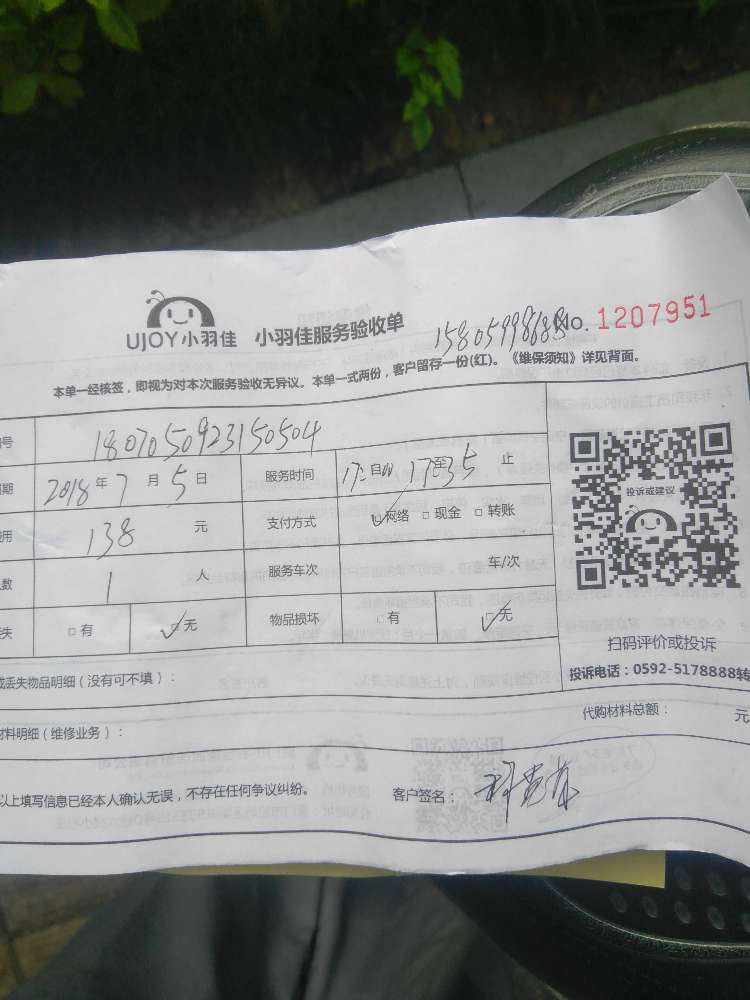 UJOY小羽佳 小羽佳服务验收单 No. 1207951
本单一经核签，即视为对本次服务验收无异议。本单一式两份，客户留存一份(红)。《维保须知》详见背面。
号 1807050923150504
期 2018年7月5日 服务时间 自 17至35止
用 138元 支付方式 ☑网络 □现金 □转账
数 1人 服务车次 车/次
失 □有 ☑无 物品损坏 □有 ☑无
投诉或建议
扫码评价或投诉
投诉电话：0592-5178888转
或丢失物品明细（没有可不填）：
材料明细（维修业务）： 代购材料总额： 元
以上填写信息已经本人确认无误，不存在任何争议纠纷。 客户签名：